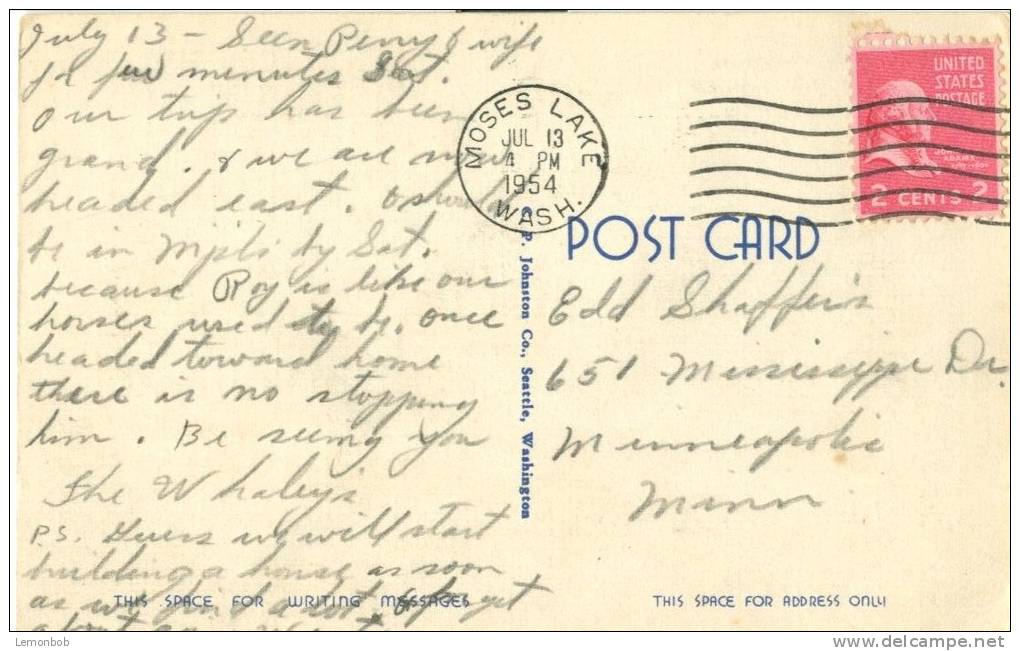 July 13 – Seen Perry & wife
few minutes Sat.
Our trip has been
grand. & we are now
headed east.
be in Mpls by Sat.
because Roy is like our
horses used to be. once
headed toward home
there is no stopping
him. Be seeing you
The Whaley's
P.S. Guess we will start
building a house as soon
as we find a lot & get
MOSES LAKE
JUL 13
4 PM
1954
WASH.
UNITED
STATES
POSTAGE
JOHN
ADAMS
2 CENTS 2
POST CARD
C. P. Johnston Co., Seattle, Washington
Edd Shaffer's
651 Mississippi Dr.
Minneapolis
Minn
THIS SPACE FOR WRITING MESSAGES
THIS SPACE FOR ADDRESS ONLY
Lemonbob
www.delcampe.net